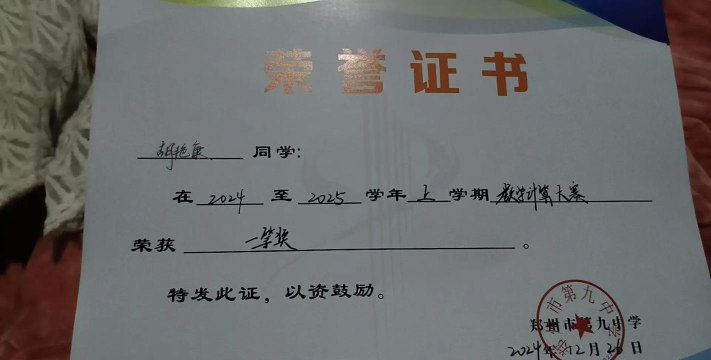 荣誉证书
胡艳康 同学:
在 2024 至 2025 学年 上 学期 数学计算大赛
荣获 一等奖 。
特发此证，以资鼓励。
郑州市第九中学
2024年12月26日